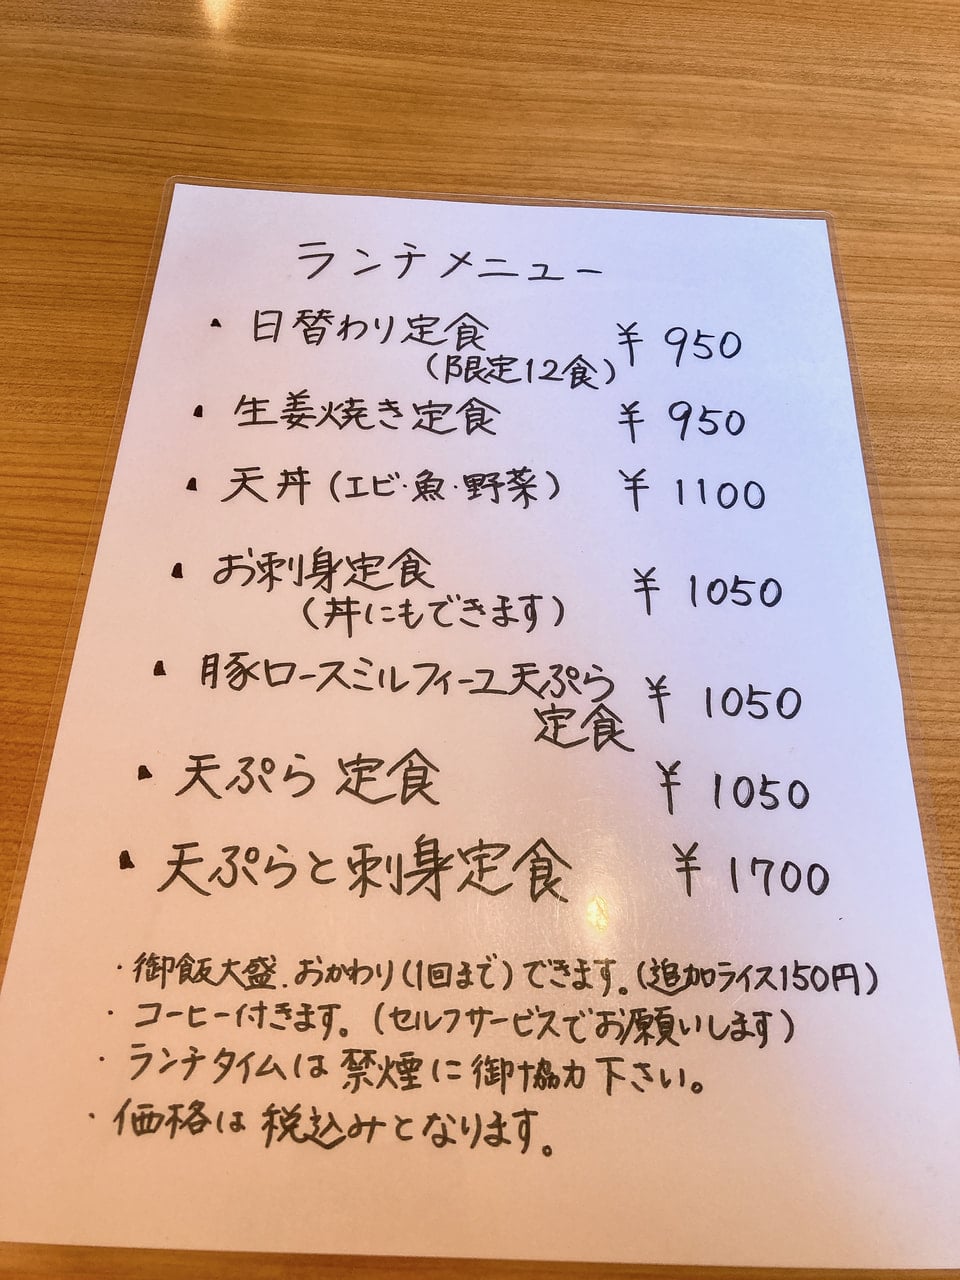 ランチメニュー
・日替わり定食 ¥950
(限定12食)
・生姜焼き定食 ¥950
・天丼(エビ・魚・野菜) ¥1100
・お刺身定食 ¥1050
(丼にもできます)
・豚ロースミルフィーユ天ぷら ¥1050
定食
・天ぷら定食 ¥1050
・天ぷらと刺身定食 ¥1700
・御飯大盛.おかわり(1回まで)できます。(追加ライス150円)
・コーヒー付きます。(セルフサービスでお願いします)
・ランチタイムは禁煙に御協力下さい。
・価格は税込みとなります。